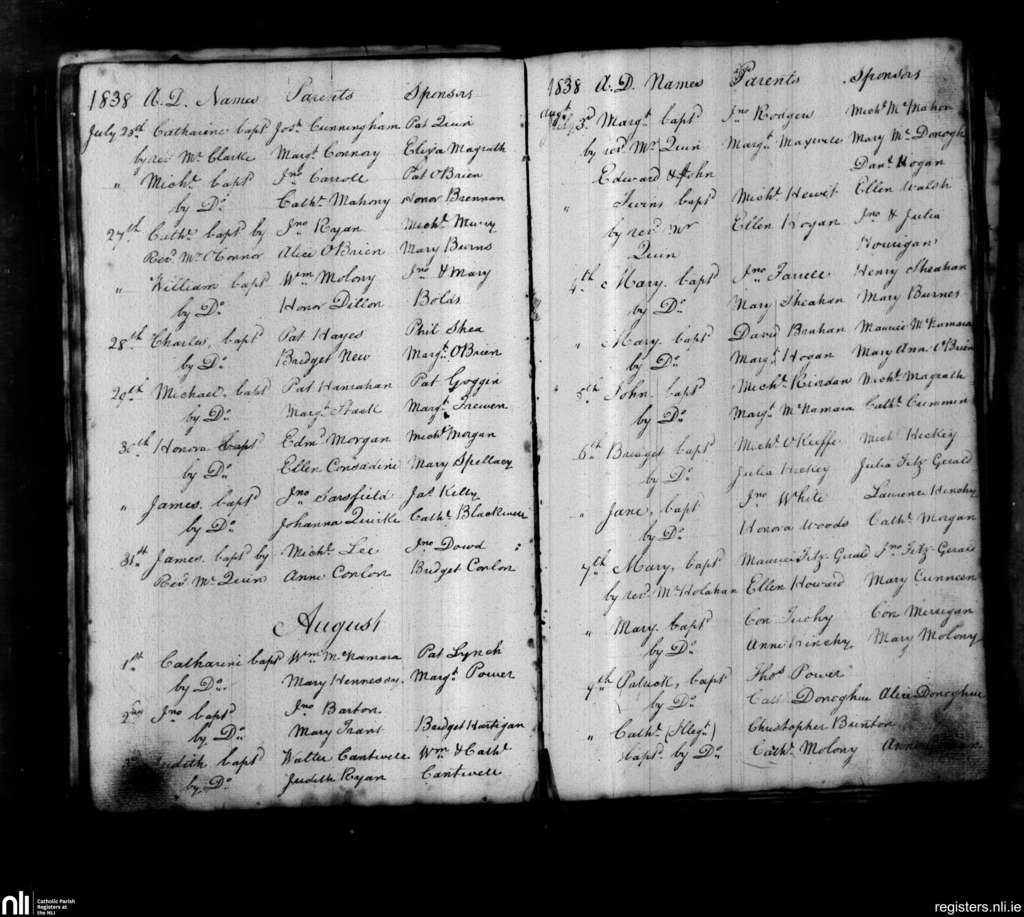 1838 A.D. Names Parents Sponsors
July 25th Catharine bapd Josh Cunningham Pat Quin
by revd Mr Clarke Margt Connory Eliza Magrath
" Michl bapd Jno Carroll Pat O'Brien
by Do Cathe Mahony Honor Brennan
27th Cathe bapd by Jno Ryan Michl
Revd Mr O'Connor Alice O'Brien Mary Burns
" William bapd Wm Molony Jno & Mary
by Do Honor Dillon Bolds
28th Charles, bapd Pat Hayes Phil Shea
by Do Bridget New Margt O'Brien
29th Michael, bapd Pat Hanrahan Pat Goggin
by Do Margt Margt Frewen
30th Honora bapd Edmd Morgan Michl Morgan
by Do Ellen Considine Mary Spellacy
" James bapd Jno Sarsfield Jas Kelly
by Do Johanna Quirke Cathe Blackwell
31st James bapd by Michl Lee Jno Dowd
Revd Mr Quin Anne Conlon Bridget Conlon
August
1st Catharine bapd Wm McNamara Pat Lynch
by Do Mary Hennessy Margt Power
2nd Jno bapd Jno Barton
by Do Mary Grant Bridget Hartigan
Judith bapd Walter Cantwell Wm & Cathe
by Do Judith Ryan Cantwell
1838 A.D. Names Parents Sponsors
Augt 3d Margt bapd Jno Rodgers Michl McMahon
by revd Mr Quin Margt Maxwell Mary McDonogh
Edward & John Danl Hogan
" Twins bapd Michl Hewet Ellen Walsh
by revd Mr Ellen Hogan Jno & Julia
Quin Hourigan
4th Mary bapd Jno Farrell Henry Sheahan
by Do Mary Sheahan Mary Burnes
" Mary bapd David Brahan Maurice McNamara
by Do Margt Hogan Mary Ann O'Brien
5th John bapd Michl Riordan Michl Magrath
by Do Margt McNamara Cathe Cummin
6th Bridget bapd Michl O'Keeffe Michl Hickey
by Do Julia Hickey Julia Fitz Gerald
" Jane, bapd Jno White Laurence Hinchy
by Do Honora Woods Cathe Morgan
7th Mary, bapd Maurice Fitz-Gerald Jno Fitz-Gerald
by revd Mr Holahan Ellen Howard Mary Cunneen
" Mary bapd Con Tuohy Con Merrigan
by Do Anne Hinchy Mary Molony
7th Patrick, bapd Thos Power
by Do Cathe Donoghue Alice Donoghue
" Cathe (Illegt) Christopher Brinton
bapd by Do Cathe Molony Anne
nli Catholic Parish
Registers at
the NLI
registers.nli.ie